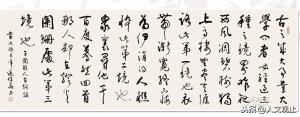 古今之成大事業大
學問者必經過三
種之境界昨夜
西風凋碧樹獨
上高樓望盡天涯
路此第一境也衣
帶漸寬終不悔
為伊消得人憔
悴此第二境也
眾裏尋他千
百度驀然回首
那人卻在燈火
闌珊處此第三
境也
头条@人文观止